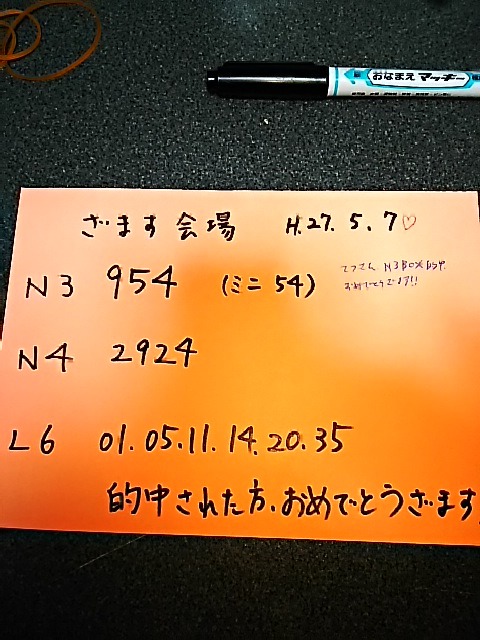 おなまえ マッキー
ざます 会場 H.27. 5. 7♡
N3 954 (ミニ 54)
てつさん N3 BOX
おめでとうございます!!
N4 2924
L6 01.05.11.14.20.35
的中された方、おめでとうざます